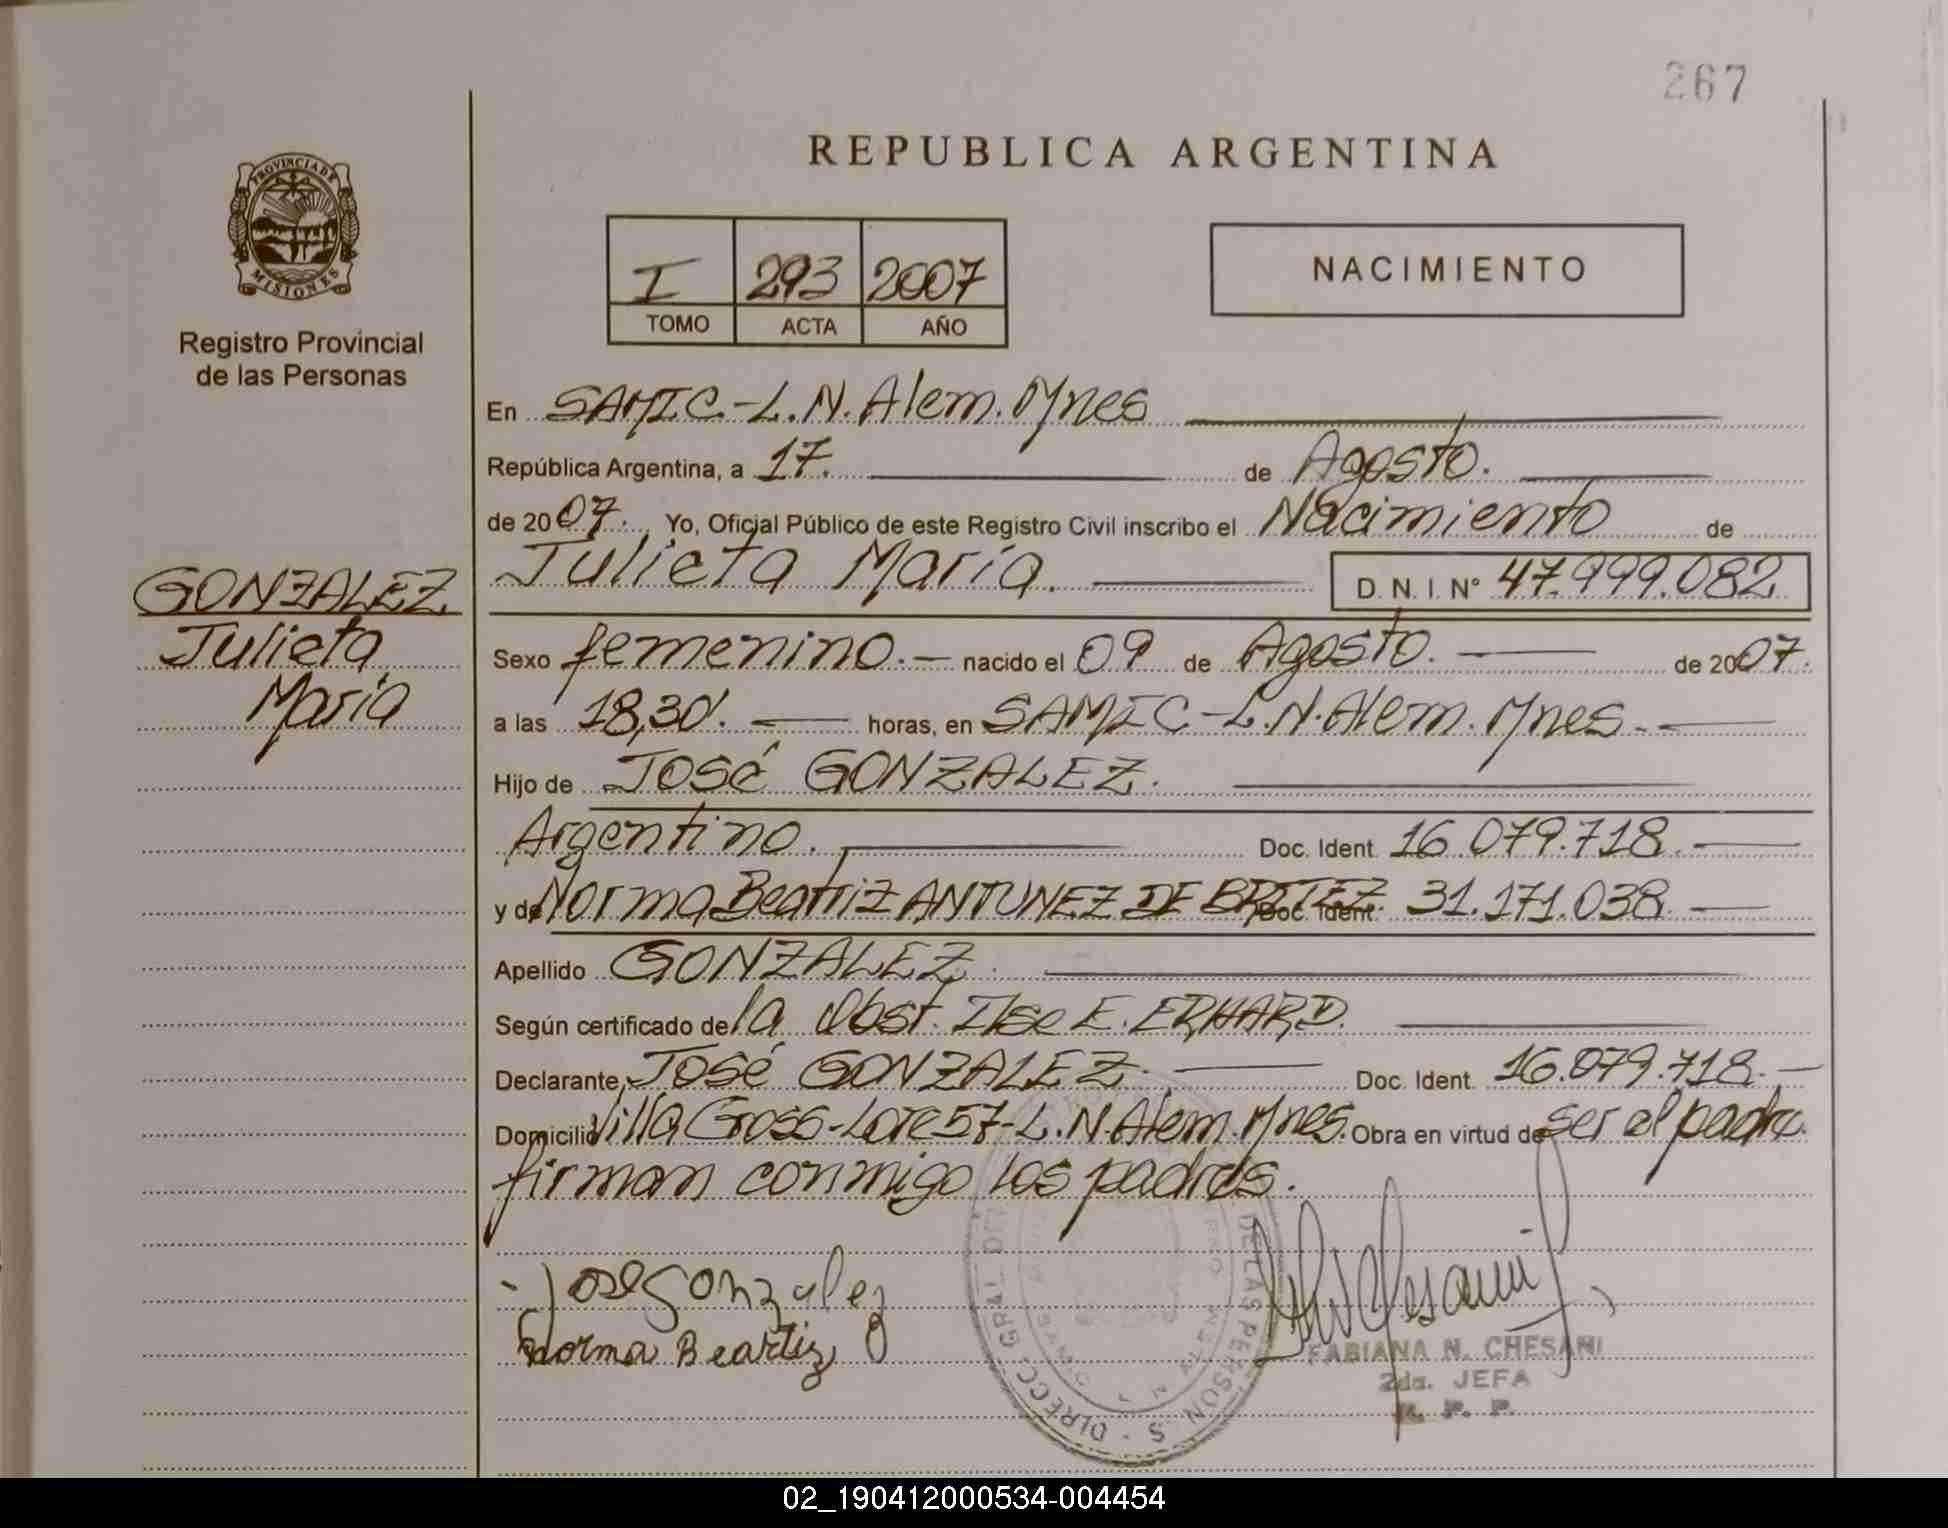 267
REPUBLICA ARGENTINA
PROVINCIA DE
MISIONES
Registro Provincial
de las Personas
I 293 2007
TOMO ACTA AÑO
NACIMIENTO
En SAMIC.-L.N.Alem.Mnes
República Argentina, a 17. de Agosto.
de 2007. Yo, Oficial Público de este Registro Civil inscribo el Nacimiento de
Julieta María. D.N.I. Nº 47.999.082
GONZALEZ
Julieta
María
Sexo femenino.- nacido el 09 de Agosto. de 2007.
a las 18,30'. horas, en SAMIC-L.N.Alem.Mnes.-
Hijo de José GONZALEZ.
Argentino. Doc. Ident. 16.079.718.
y de Norma Beatriz ANTUNEZ DE BRITEZ Doc. Ident. 31.171.038.
Apellido GONZALEZ.
Según certificado de la Obst. Ilse E. ERHARD.
Declarante, José GONZALEZ. Doc. Ident. 16.079.718.-
Domicilio Villa Gross-Lote 57-L.N.Alem.Mnes. Obra en virtud de ser el padre.
firman conmigo los padres.
Jose Gonzalez
Norma Beartiz
DIRECC. GRAL. DE LAS PERSON S
FABIANA N. CHESANI
2da. JEFA
R. P. P.
02_190412000534-004454